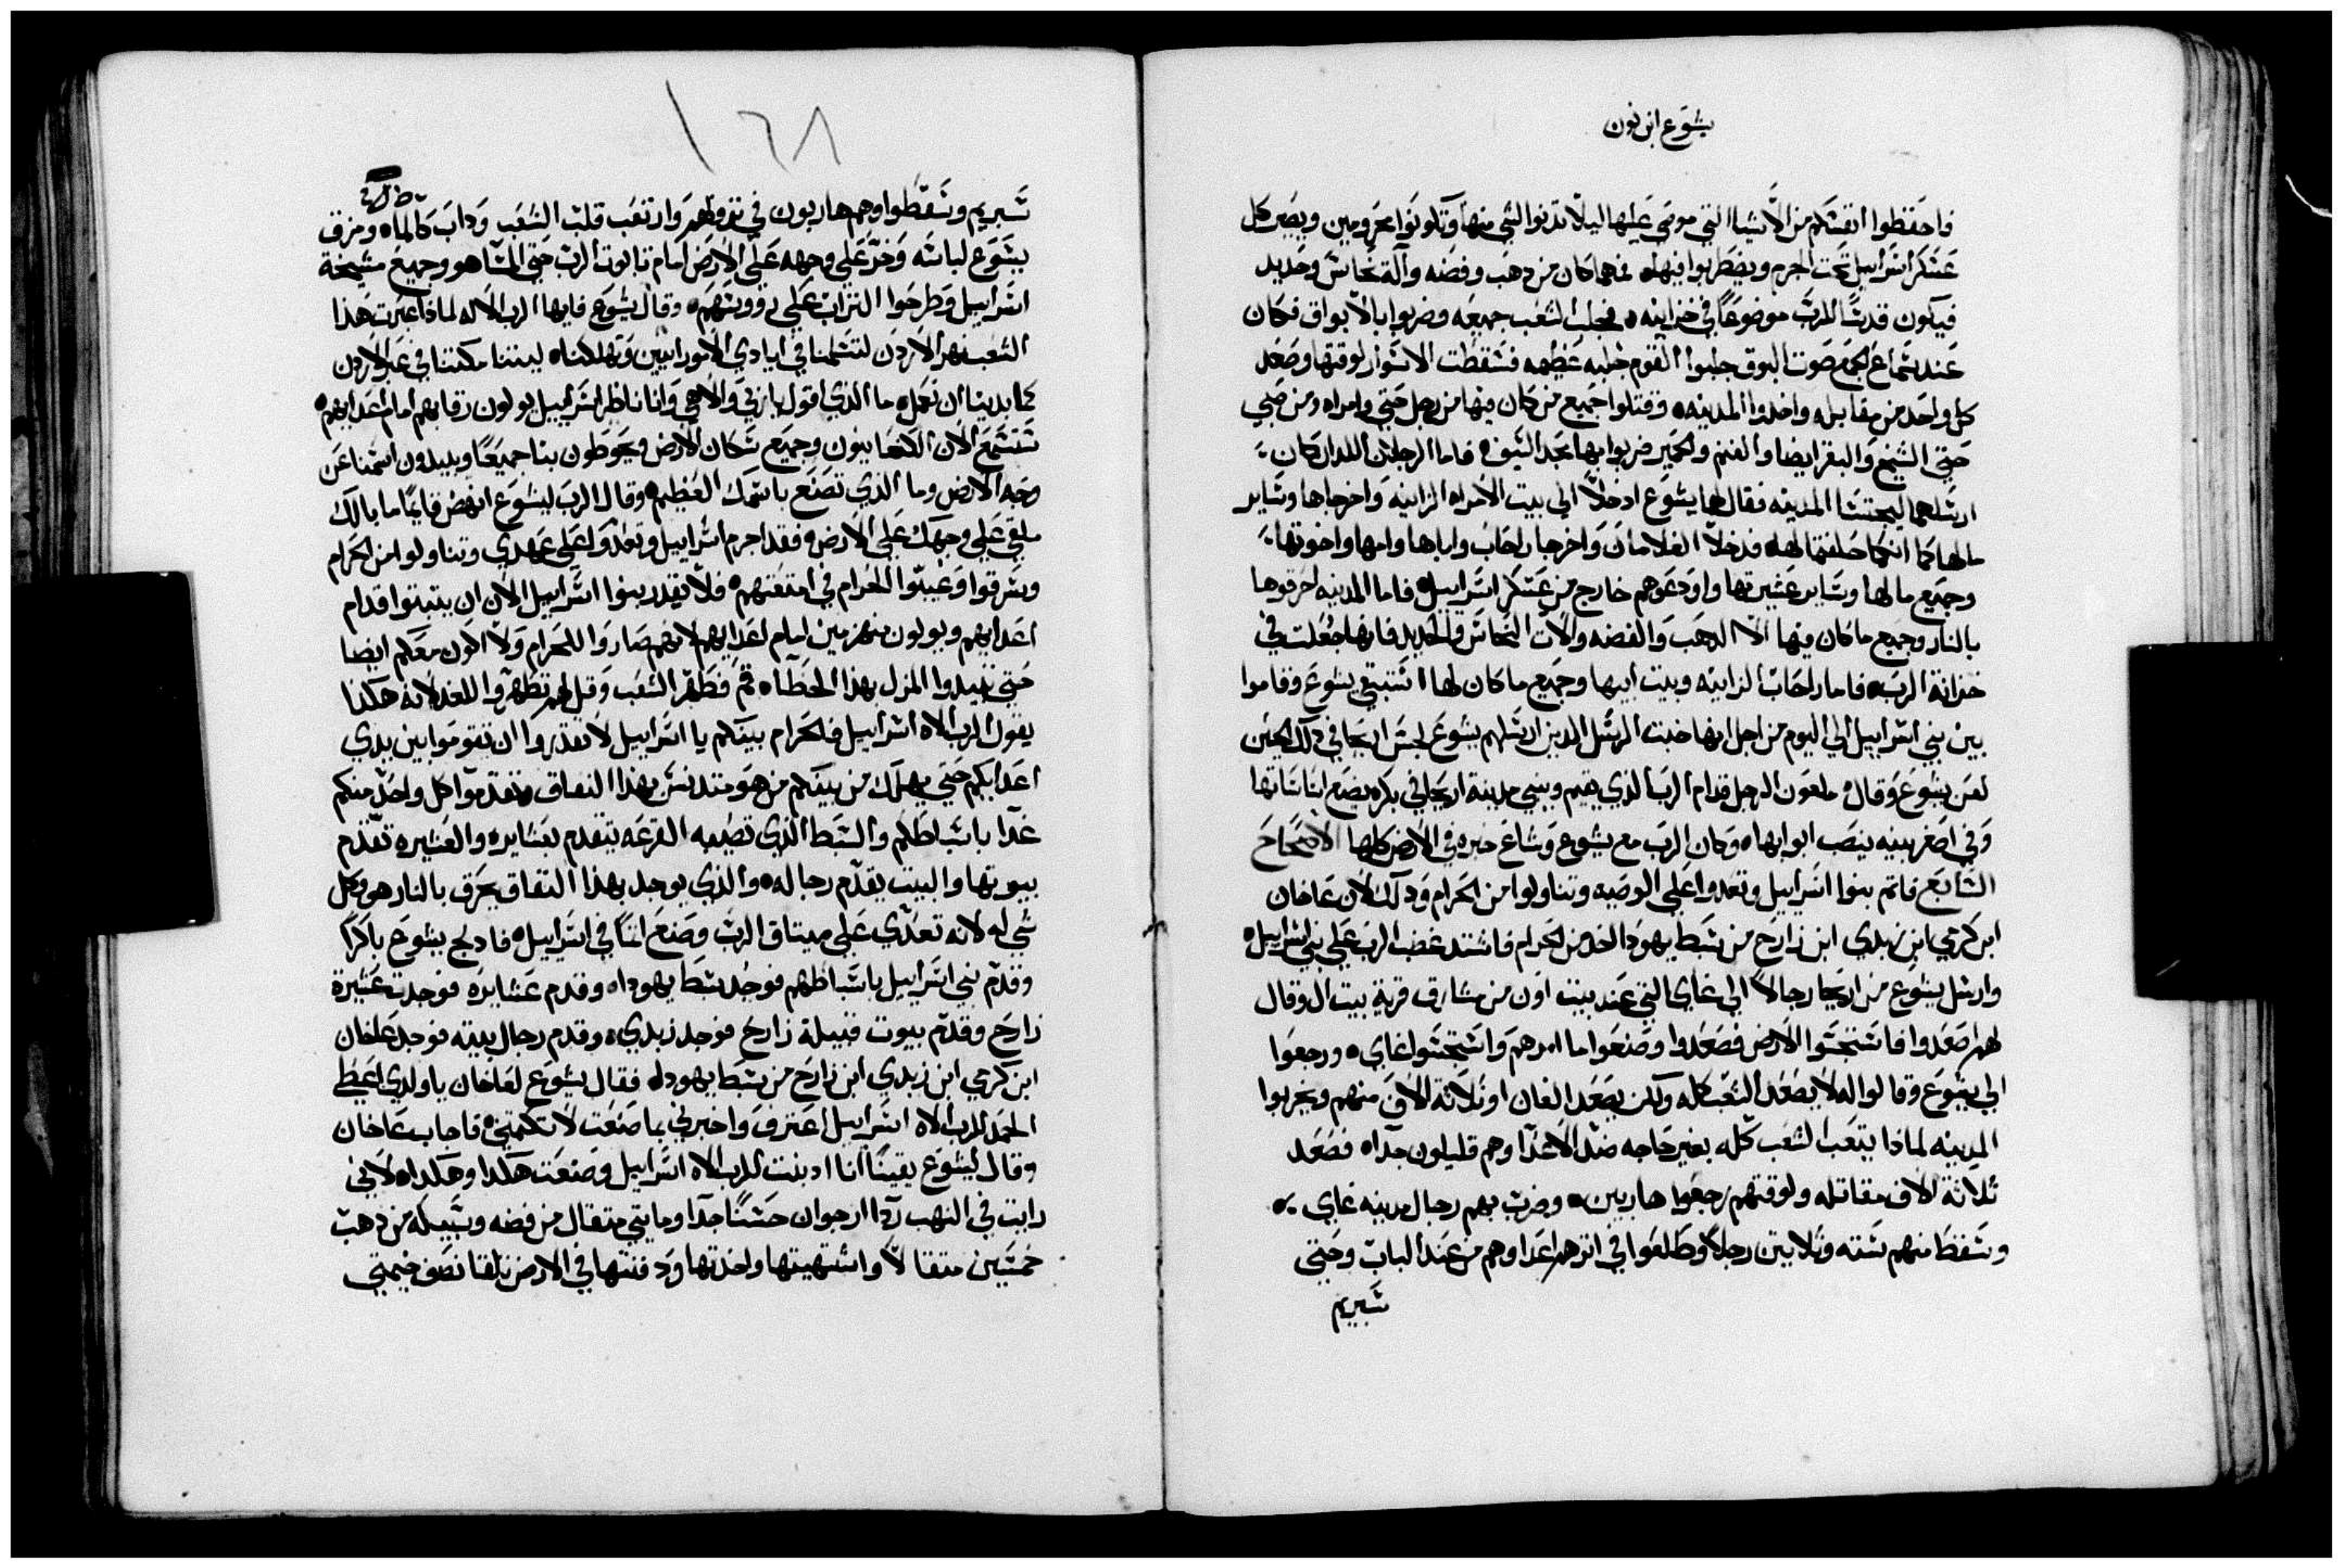 يشوع ابن نون
فاحفظوا انفسكم من الاشيا التي موصى عليها ليلا تدنوا الشي منها وتكونوا محرومين ويصير كل
عسكر اسراييل تحت الحرم ويضطربوا فيها فمهما كان من دهب وفضه وآلة نحاس وحديد
فيكون قدسًا للرب موضوعًا في خزاينه فجلب الشعب جميعه وضربوا بالابواق فكان
عند سماع الجمع صوت البوق جلبوا القوم جلبه عظيمه فسقطت الاسوار لوقتها وصعد
كل واحد من مقابله واخدوا المدينه وقتلوا جميع من كان فيها من رجل حتى وامراه ومن صبي
حتى الشيخ والبقر ايضا والغنم والحمير ضربوا بها بحد السيف فاما الرجلان اللدان كان
ارسلهما ليجتسسا المدينه فقال لهما يشوع ادخلا الي بيت الامراه الزانيه واخرجاها وساير
مالها كما انكما حلفتما لها فدخلا الغلامان واخرجا راحاب واباها وامها واخوتها
وجميع مالها وساير عشيرتها واودعوهم خارج من عسكر اسراييل فاما المدينه احرقوها
بالنار وجميع ما كان فيها الا الدهب والفضه وآلات النحاس والحديد فانها جعلت في
خزانة الرب فاما راحاب الزانيه وبيت ابيها وجميع ما كان لها استبقي يشوع وقاموا
بين بني اسراييل الي اليوم من اجل انها خبت الرسل الدين ارسلهم يشوع لجس اريحا في دلك الحين
لعن يشوع وقال ملعون الرجل قدام الرب الذي يقيم ويبني مدينة اريحا في بكره يضع اساساتها
وفي اصغر بنيه ينصب ابوابها وكان الرب مع يشوع وشاع خبره في الارض كلها الاصحاح
السابع فاثم بنوا اسراييل وتعدوا علي الوصيه وتناولوا من الحرام ودلك لان عاخان
ابن كرمي ابن زبدي ابن زارح من سبط يهودا اخد من الحرام فاشتد غضب الرب علي بني اسراييل
وارسل يشوع من اريحا رجالاً الي غاي التي عند بيت اون من مشارق قرية بيت ال وقال
لهم اصعدوا فاستجسوا الارض فصعدوا وصنعوا ما امرهم واستجسوا غاي ورجعوا
الي يشوع وقالوا له لا يصعد الشعب كله ولكن يصعد الفان او ثلاثة الاف منهم ويخربوا
المدينه لماذا يتعب الشعب كله بغير حاجه ضد الاعدا وهم قليلون جدا فصعد
ثلاثة الاف مقاتله ولوقتهم رجعوا هاربين وضرب بهم رجال مدينه غاي
وسقط منهم سته وثلاثين رجلا وطلعوا في اثرهم اعداوهم من عند الباب وحتي
سبريم
١٦٨
سبريم وسقطوا وهم هاربون في نزولهم وارتعب قلب الشعب وداب كالماء ومزق
يشوع لباسه وخر علي وجهه علي الارض امام تابوت الرب حتي المسا هو وجميع مشيخة
اسراييل وطرحوا التراب علي رووسهم وقال يشوع فايها الرب الاله لماذا عبرت هذا
الشعب نهر الاردن لتسلمنا في ايادي الامورانيين وتهلكنا ليتنا مكثنا في عبر الاردن
كما بدينا ان نعمل ما الذي اقول يا ربي والاهي وانا ناظر اسراييل يولون رقابهم امام اعدايهم
تستمع الان الكنعانيون وجميع سكان الارض ويحوطون بنا جميعًا ويبيدون اسمنا عن
وجه الارض وما الذي تصنع باسمك العظيم وقال الرب ليشوع انهض قايمًا ما بالك
ملقي علي وجهك علي الارض فقد اجرم اسراييل وتعدوا علي عهدي وتناولوا من الحرام
وسرقوا وغيبوا الحرام في امتعتهم فلا يقدر بنوا اسراييل الان ان يثبتوا قدام
اعدايهم ويولون منهزمين امام اعدايهم لانهم صاروا للحرام ولا اكون معكم ايضا
حتي تبيدوا المزل بهذا الخطا قم فطهر الشعب وقل لهم تطهروا للغد لانه هكذا
يقول الرب الاه اسراييل فالحرام بينكم يا اسراييل لا تقدروا ان تقوموا بين يدي
اعدايكم حتي يهلك من بينكم من هو متدنس بهذا النفاق وتتقدموا كل واحد منكم
غدًا باسباطكم والسبط الذي تصيبه القرعه يتقدم بعشايره والعشيره تقدم
بيوتها والبيت يقدم رجاله والذي يوجد بهذا النفاق يحرق بالنار هو وكل
شي له لانه تعدي علي ميتاق الرب وصنع اثمًا في اسراييل فادلج يشوع باكرًا
وقدم بني اسراييل باسباطهم فوجد سبط يهودا وقدم عشايره فوجدت عشيرة
زارح وقدم بيوت قبيلة زارح فوجد زبدي وقدم رجال بيته فوجد عاخان
ابن كرمي ابن زبدي ابن زارح من سبط يهودا فقال يشوع لعاخان يا ولدي اعطي
الحمد للرب الاه اسراييل اعترف واخبرني بما صنعت لا تكتمني فاجاب عاخان
وقال ليشوع يقينًا انا ادنبت للرب الاه اسراييل وصنعت هكدا وهكدا لاني
رايت في النهب ردا ارجوان حسنًا جدًا ومايتي متقال من فضه وسبيكه من دهب
خمسين متقالاً واشتهيتها واخدتها ودفنتها في الارض تلقا نصف خيمتي